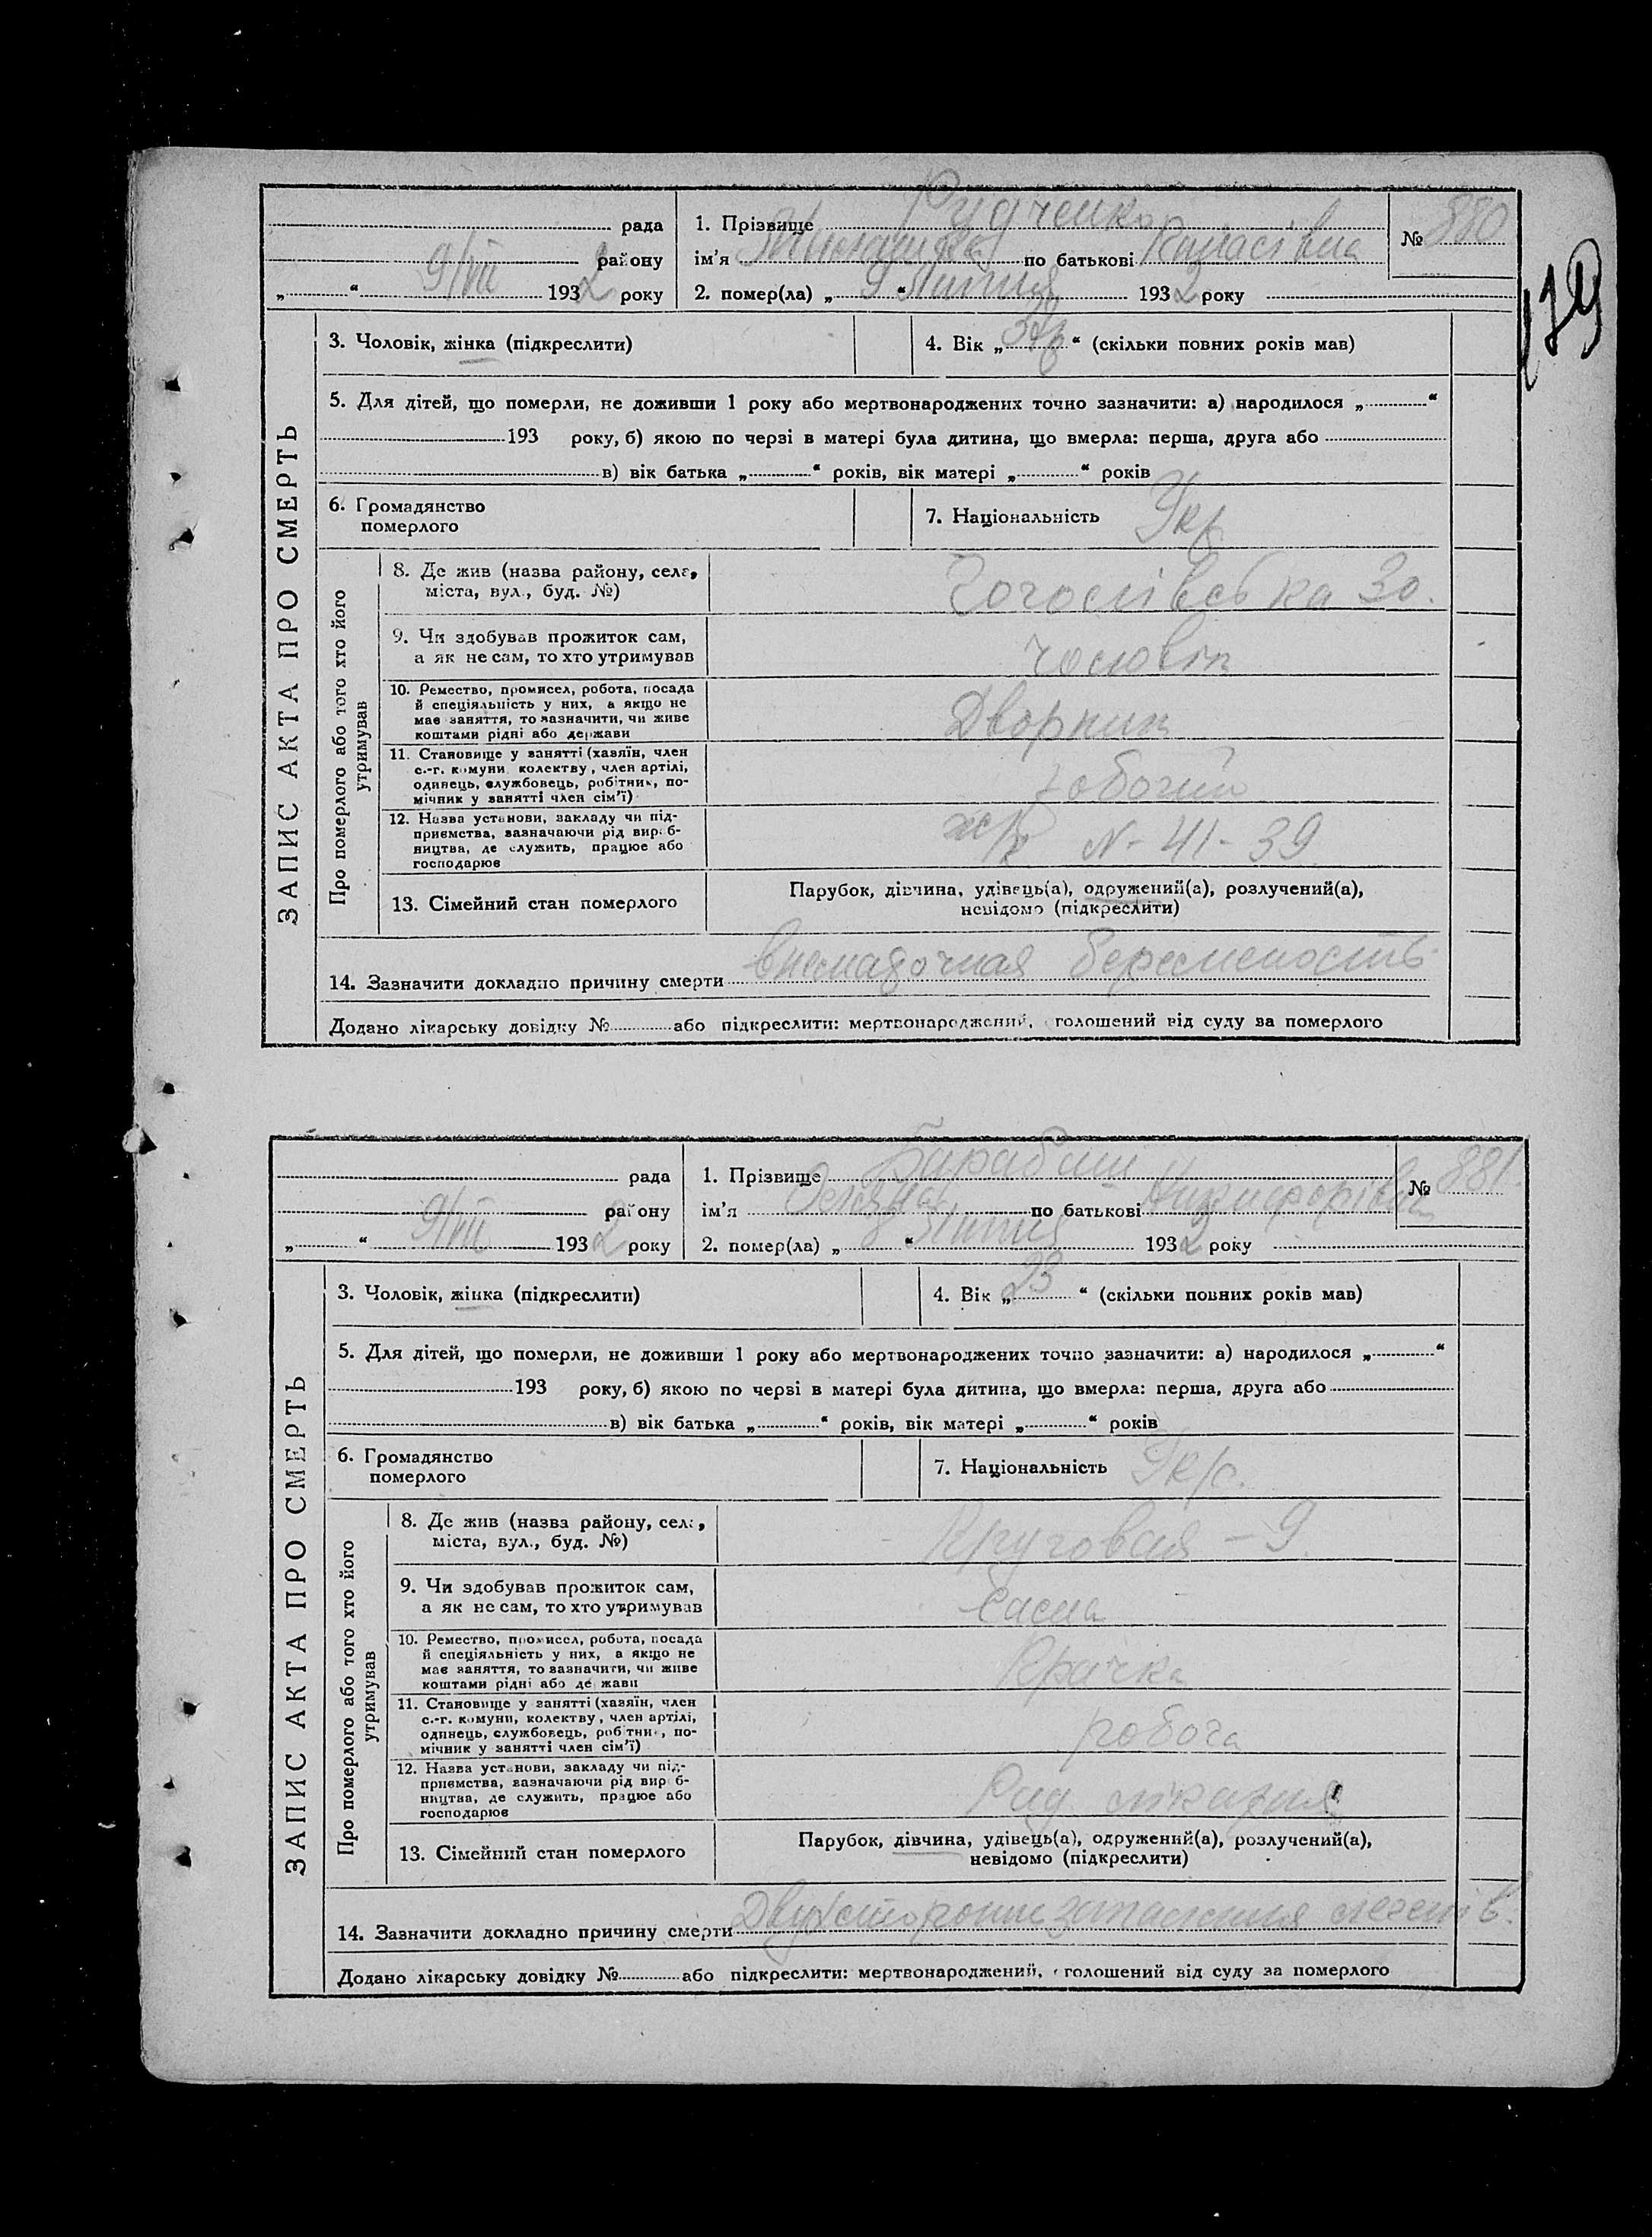 рада
району
9/VII 1932 року
1. Прізвище Рудченко
ім’я по батькові
2. помер(ла) „ 9 “ Липня 1932 року
№ 880
179
ЗАПИС АКТА ПРО СМЕРТЬ
3. Чоловік, жінка (підкреслити)
4. Вік „ “ (скільки повних років мав)
5. Для дітей, що померли, не доживши 1 року або мертвонароджених точно зазначити: а) народилося „ “
193 року, б) якою по черзі в матері була дитина, що вмерла: перша, друга або
в) вік батька „ “ років, вік матері „ “ років
6. Громадянство
померлого
7. Національність Укр
Про померлого або того хто його
утримував
8. Де жив (назва району, села,
міста, вул., буд. №)
30.
9. Чи здобував прожиток сам,
а як не сам, то хто утримував
чоловік
10. Ремество, промисел, робота, посада
й спеціяльність у них, а якщо не
має заняття, то зазначити, чи живе
коштами рідні або держави
Дворник
11. Становище у занятті (хазяїн, член
с.-г. комуни, колективу, член артілі,
одинець, службовець, робітник, по-
мічник у занятті член сім’ї)
робочий
12. Назва установи, закладу чи під-
приємства, зазначаючи рід вироб-
ництва, де служить, працює або
господарює
ж/к N- 41-39
13. Сімейний стан померлого
Парубок, дівчина, удівець(а), одружений(а), розлучений(а),
невідомо (підкреслити)
14. Зазначити докладно причину смерти внематочная беременность
Додано лікарську довідку № або підкреслити: мертвонароджений, оголошений від суду за померлого
рада
району
9/VII 1932 року
1. Прізвище Барабаш
ім’я по батькові Никифорівна
2. помер(ла) „ 8 “ Липня 1932 року
№ 881.
ЗАПИС АКТА ПРО СМЕРТЬ
3. Чоловік, жінка (підкреслити)
4. Вік „ 23 “ (скільки повних років мав)
5. Для дітей, що померли, не доживши 1 року або мертвонароджених точно зазначити: а) народилося „ “
193 року, б) якою по черзі в матері була дитина, що вмерла: перша, друга або
в) вік батька „ “ років, вік матері „ “ років
6. Громадянство
померлого
7. Національність Укр.
Про померлого або того хто його
утримував
8. Де жив (назва району, села,
міста, вул., буд. №)
Круговая - 9
9. Чи здобував прожиток сам,
а як не сам, то хто утримував
Сама
10. Ремество, промисел, робота, посада
й спеціяльність у них, а якщо не
має заняття, то зазначити, чи живе
коштами рідні або держави
Прачка
11. Становище у занятті (хазяїн, член
с.-г. комуни, колективу, член артілі,
одинець, службовець, робітник, по-
мічник у занятті член сім’ї)
робоча
12. Назва установи, закладу чи під-
приємства, зазначаючи рід вироб-
ництва, де служить, працює або
господарює
лікарня
13. Сімейний стан померлого
Парубок, дівчина, удівець(а), одружений(а), розлучений(а),
невідомо (підкреслити)
14. Зазначити докладно причину смерти запалення легенів.
Додано лікарську довідку № або підкреслити: мертвонароджений, оголошений від суду за померлого